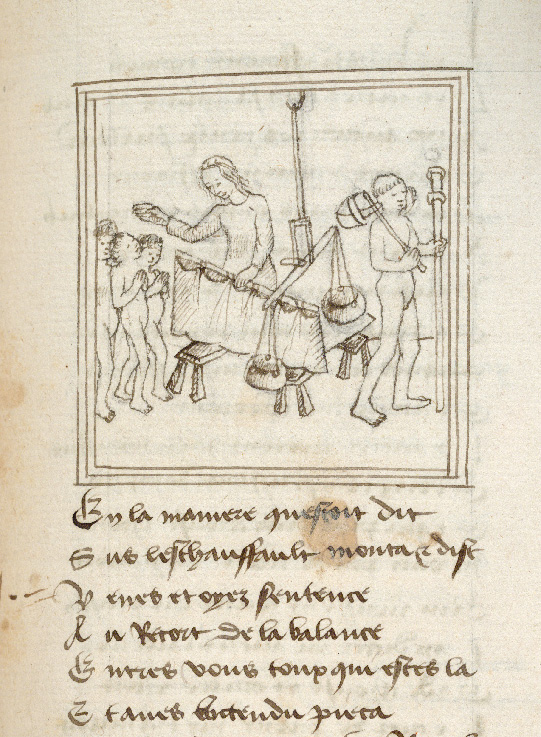 En la maniere questoit dit
Sus leschauffault monta & dist
Venes et oyez sentence
Au Recort de la balance
Entres vous touz qui estes la
Et aues attendu pieca